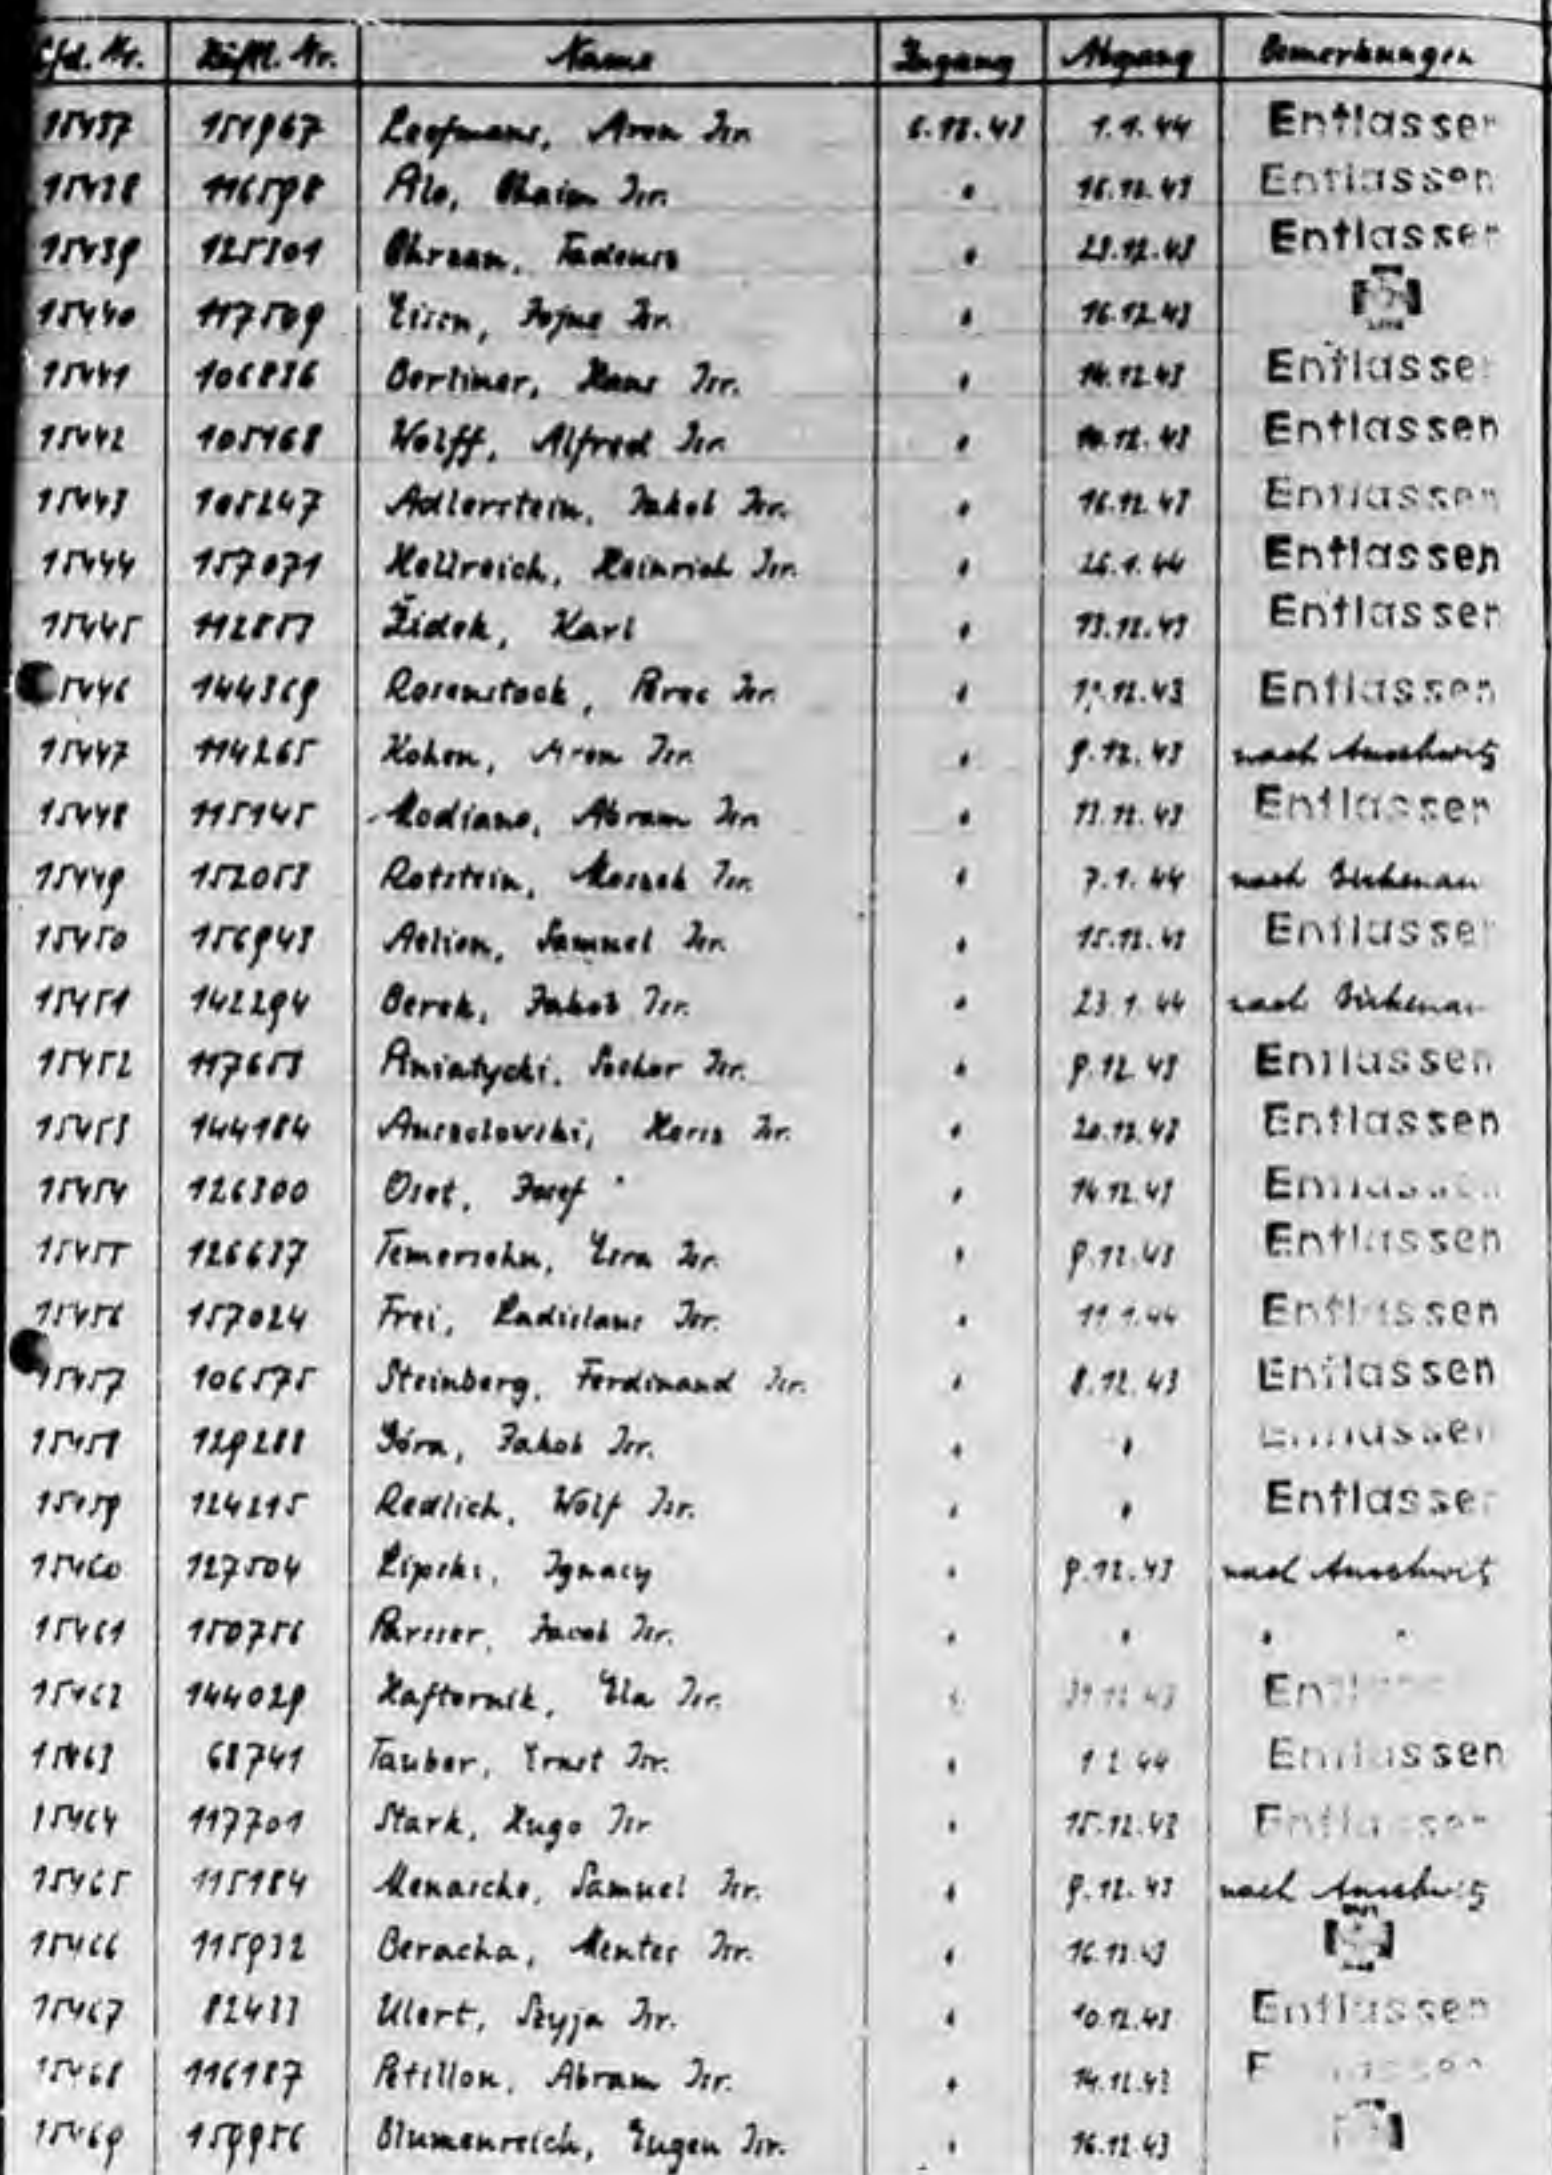 Lfd. Nr. Häftl. Nr. Name Zugang Abgang Bemerkungen
15437 151967 Aron Isr. 6.12.43 1.1.44 Entlassen
15438 116598 Alo, Chaim Isr. " 16.12.43 Entlassen
15439 125301 Chrzan, Tadeusz " 23.12.43 Entlassen
15440 117509 Eisen, Fojne Isr. " 16.12.43
15441 106836 Berliner, Hans Isr. " 14.12.43 Entlassen
15442 105468 Wolff, Alfred Isr. " 10.12.43 Entlassen
15443 105247 Adlerstein, Jakob Isr. " 16.12.43 Entlassen
15444 157071 Hellreich, Heinrich Isr. " 26.1.44 Entlassen
15445 112857 Židek, Karl " 13.12.43 Entlassen
15446 144369 Rosenstock, Perec Isr. " .12.43 Entlassen
15447 114265 Kohen, Aron Isr. " 9.12.43 nach Auschwitz
15448 115145 Modiano, Abram Isr. " 13.12.43 Entlassen
15449 152053 Rotstein, Moszek Isr. " 7.1.44 nach Birkenau
15450 156943 Aelion, Samuel Isr. " 15.12.43 Entlassen
15451 142294 Berek, Jakob Isr. " 23.1.44 nach Birkenau
15452 117653 Isr. " 9.12.43 Entlassen
15453 144184 Anszolowski, Hersz Isr. " 20.12.43 Entlassen
15454 126300 Oset, Josef " 14.12.43 Entlassen
15455 126637 Temersohn, Esra Isr. " 9.12.43 Entlassen
15456 157024 Frei, Ladislaus Isr. " 11.1.44 Entlassen
15457 106575 Steinberg, Ferdinand Isr. " 8.12.43 Entlassen
15458 129288 Góra, Jakob Isr. " " Entlassen
15459 124215 Redlich, Wolf Isr. " " Entlassen
15460 127504 Lipski, Ignacy " 9.12.43 nach Auschwitz
15461 150756 Parsser, Jacob Isr. " " " "
15462 144029 Haftornik, Ela Isr. " 31.12.43 Entlassen
15463 68741 Tauber, Ernst Isr. " 1.2.44 Entlassen
15464 117701 Stark, Hugo Isr. " 15.12.43 Entlassen
15465 115184 Menasche, Samuel Isr. " 9.12.43 nach Auschwitz
15466 115932 Beracha, Mentes Isr. " 16.12.43
15467 82433 Ulert, Szyja Isr. " 10.12.43 Entlassen
15468 116187 Petillon, Abram Isr. " 14.12.43 Entlassen
15469 159956 Blumenreich, Eugen Isr. " 16.12.43